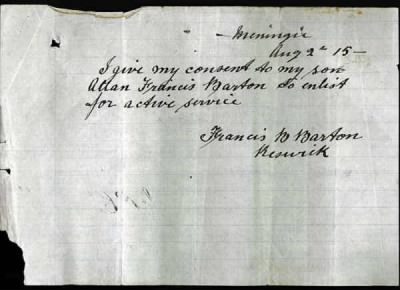 - Meningie
Aug 2nd 15 -
I give my consent to my son
Allan Francis Barton to enlist
for active service
Francis B Barton
Keswick